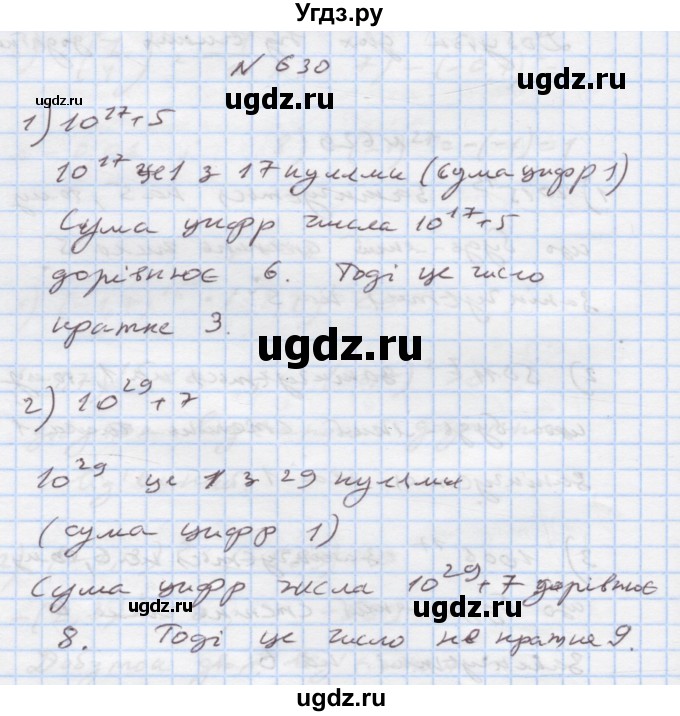 Угдз.ру
№ 630
1) 10²⁷+5
10¹⁷ це 1 з 17 нулями (сума цифр 1)
Сума цифр числа 10¹⁷+5
дорівнює 6. Тоді це число
кратне 3.
2) 10²⁹+7
10²⁹ це 1 з 29 нулями
(сума цифр 1)
Сума цифр числа 10²⁹+7 дорівнює
8. Тоді це число не кратне 9.
ugdz.ru
ugdz.ru
ugdz.ru
ugdz.ru
ugdz.ru
ugdz.ru
ugdz.ru
ugdz.ru
ugdz.ru
ugdz.ru
ugdz.ru